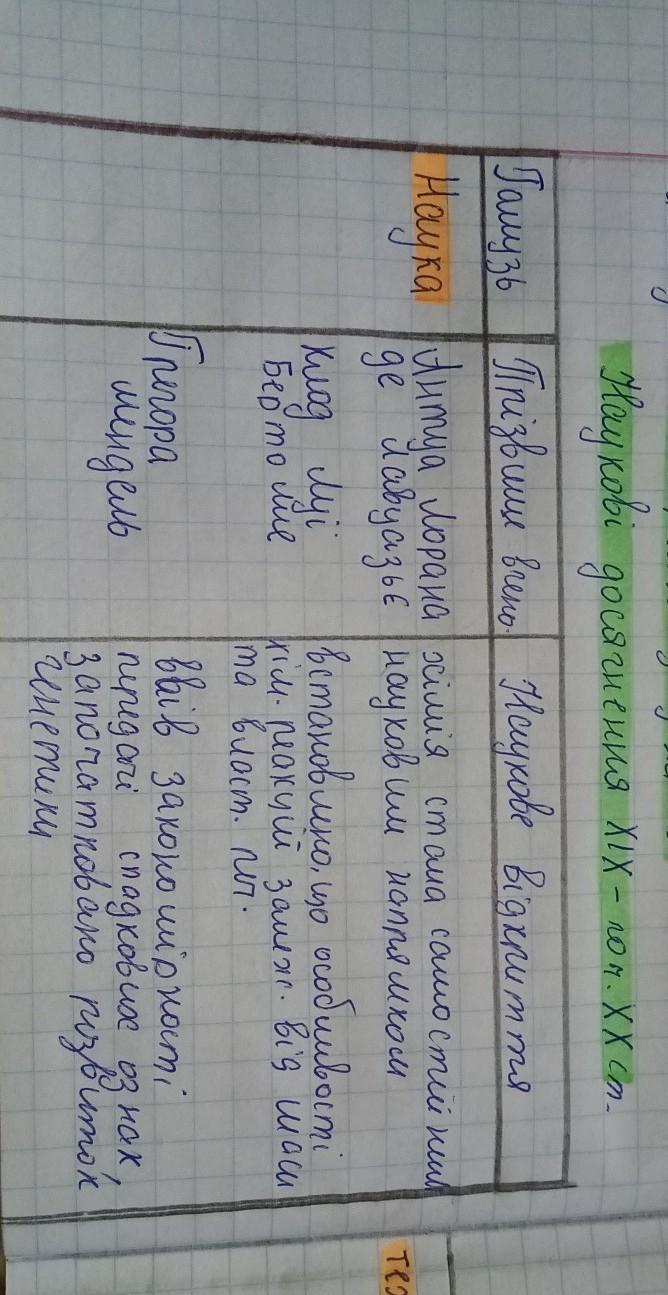 Наукові досягнення XIX - поч. XX ст.
Галузь
Прізвище вчено.
Наукове відкриття
Наука
Антуа Лорана
де Лавуазьє
хімія стала самостійним
науковим напрямком
Клод Луі
Бертолле
встановлено, що особливості
хім. реакцій залеж. від маси
та власт. реч.
Грегора
мендель
ввів закономірності
передачі спадкових ознак,
започатковано розвиток
генетики
тех